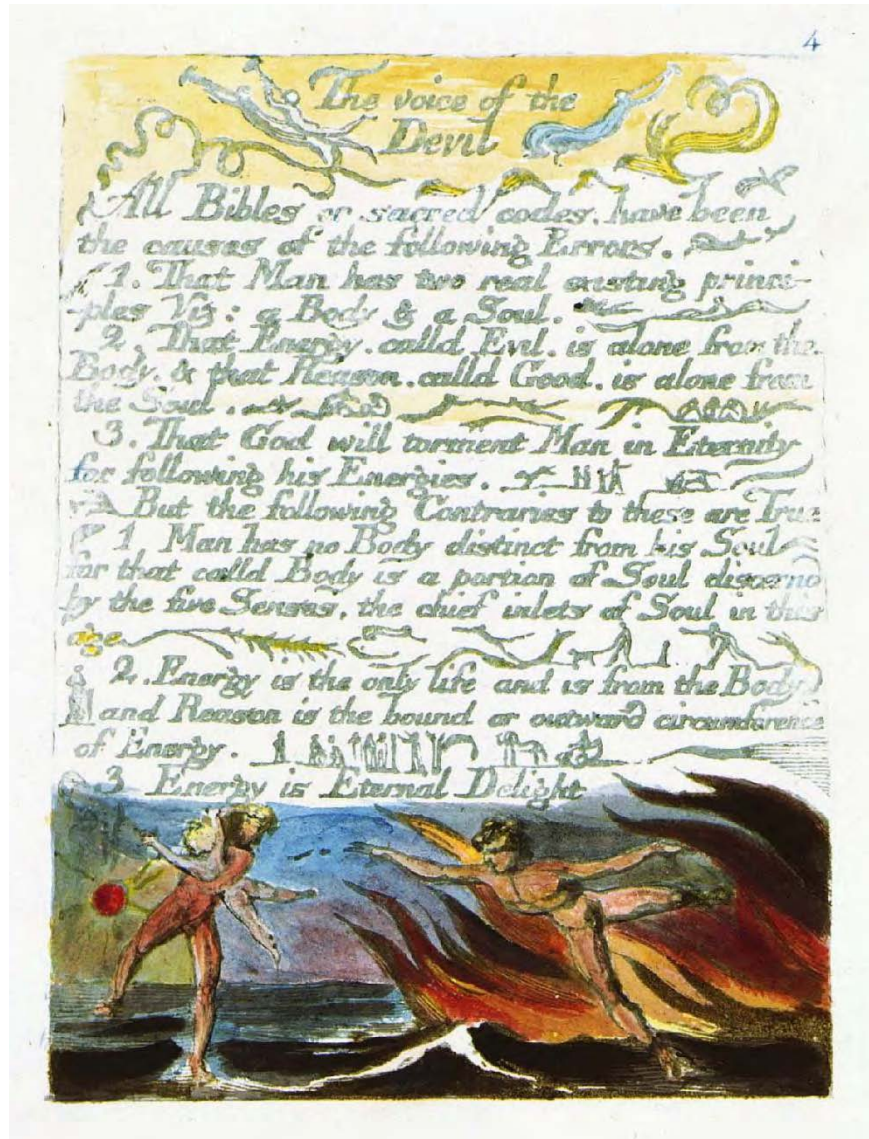 4
The voice of the
Devil
All Bibles or sacred codes. have been
the causes of the following Errors.
1. That Man has two real existing princi-
-ples Viz: a Body & a Soul.
2. That Energy. calld Evil. is alone from the
Body. & that Reason. calld Good. is alone from
the Soul.
3. That God will torment Man in Eternity
for following his Energies.
But the following Contraries to these are True
1 Man has no Body distinct from his Soul
for that calld Body is a portion of Soul discernd
by the five Senses. the chief inlets of Soul in this
age
2. Energy is the only life and is from the Body
and Reason is the bound or outward circumference
of Energy.
3 Energy is Eternal Delight